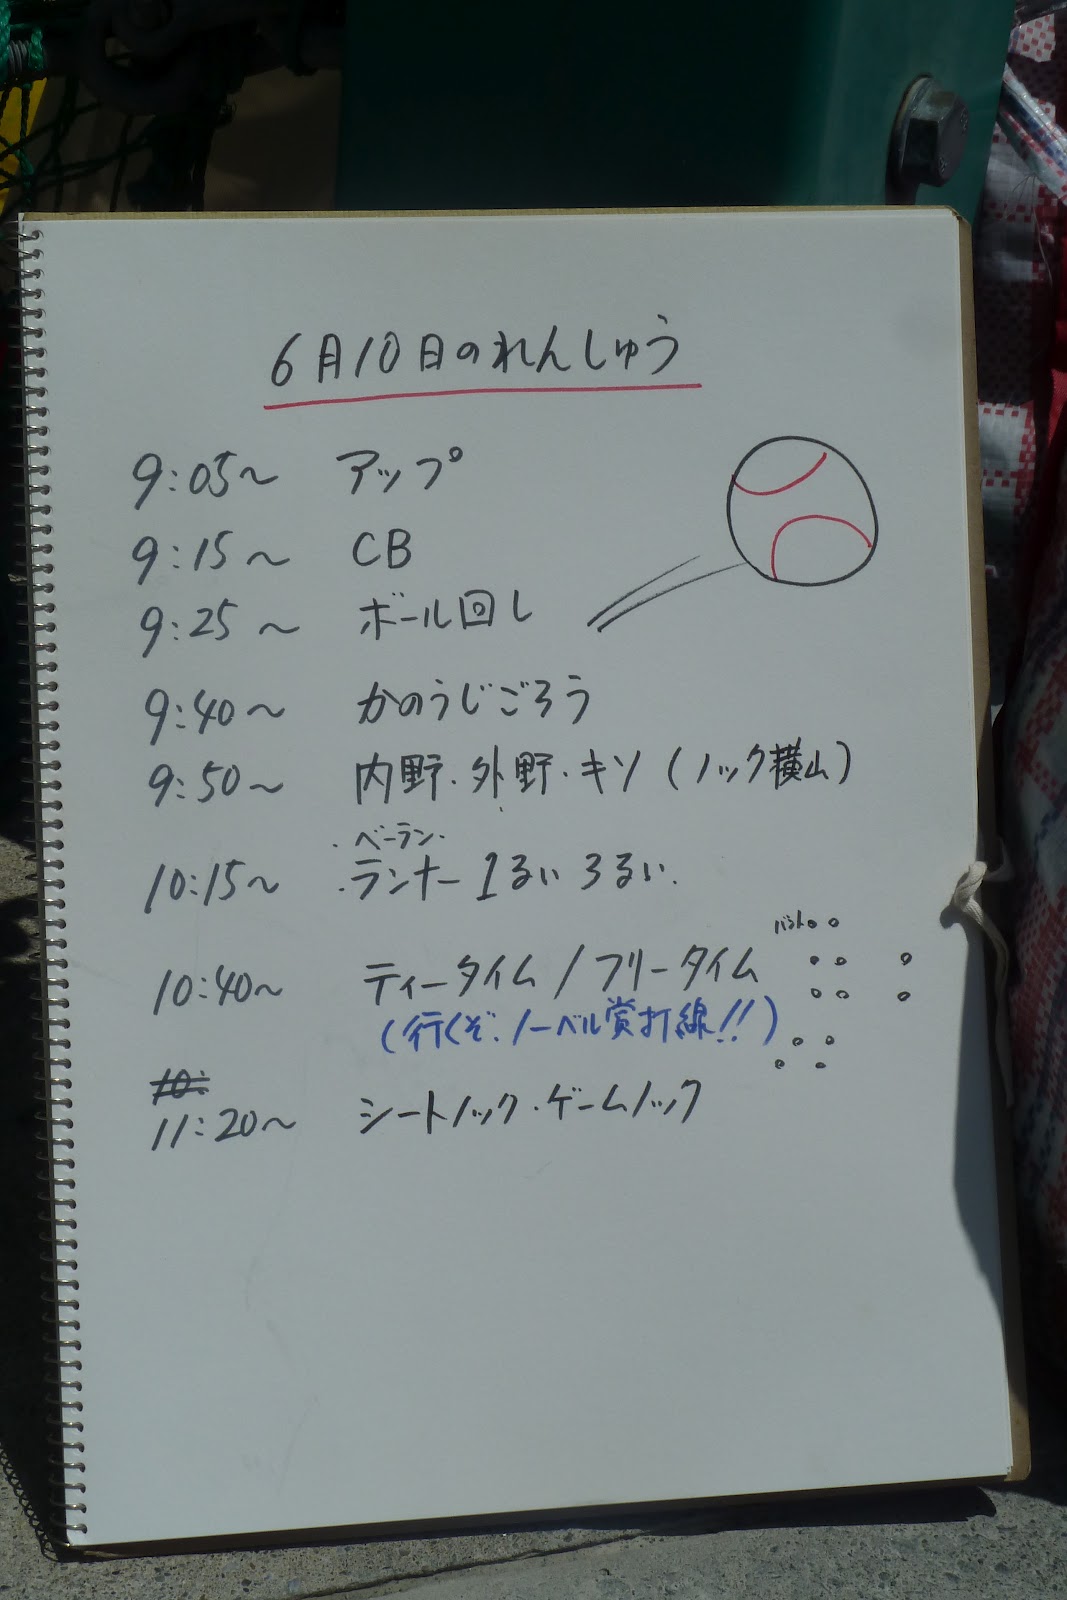 6月10日のれんしゅう
9:05〜 アップ
9:15〜 CB
9:25〜 ボール回し
9:40〜 かのうじごろう
9:50〜 内野・外野・キソ(ノック横山)
・ベーラン・
10:15〜 ・ランナー1るい3るい.
バント
10:40〜 ティータイム/フリータイム
(行くぞ、ノーベル賞打線!!)
10:
11:20〜 シートノック・ゲームノック